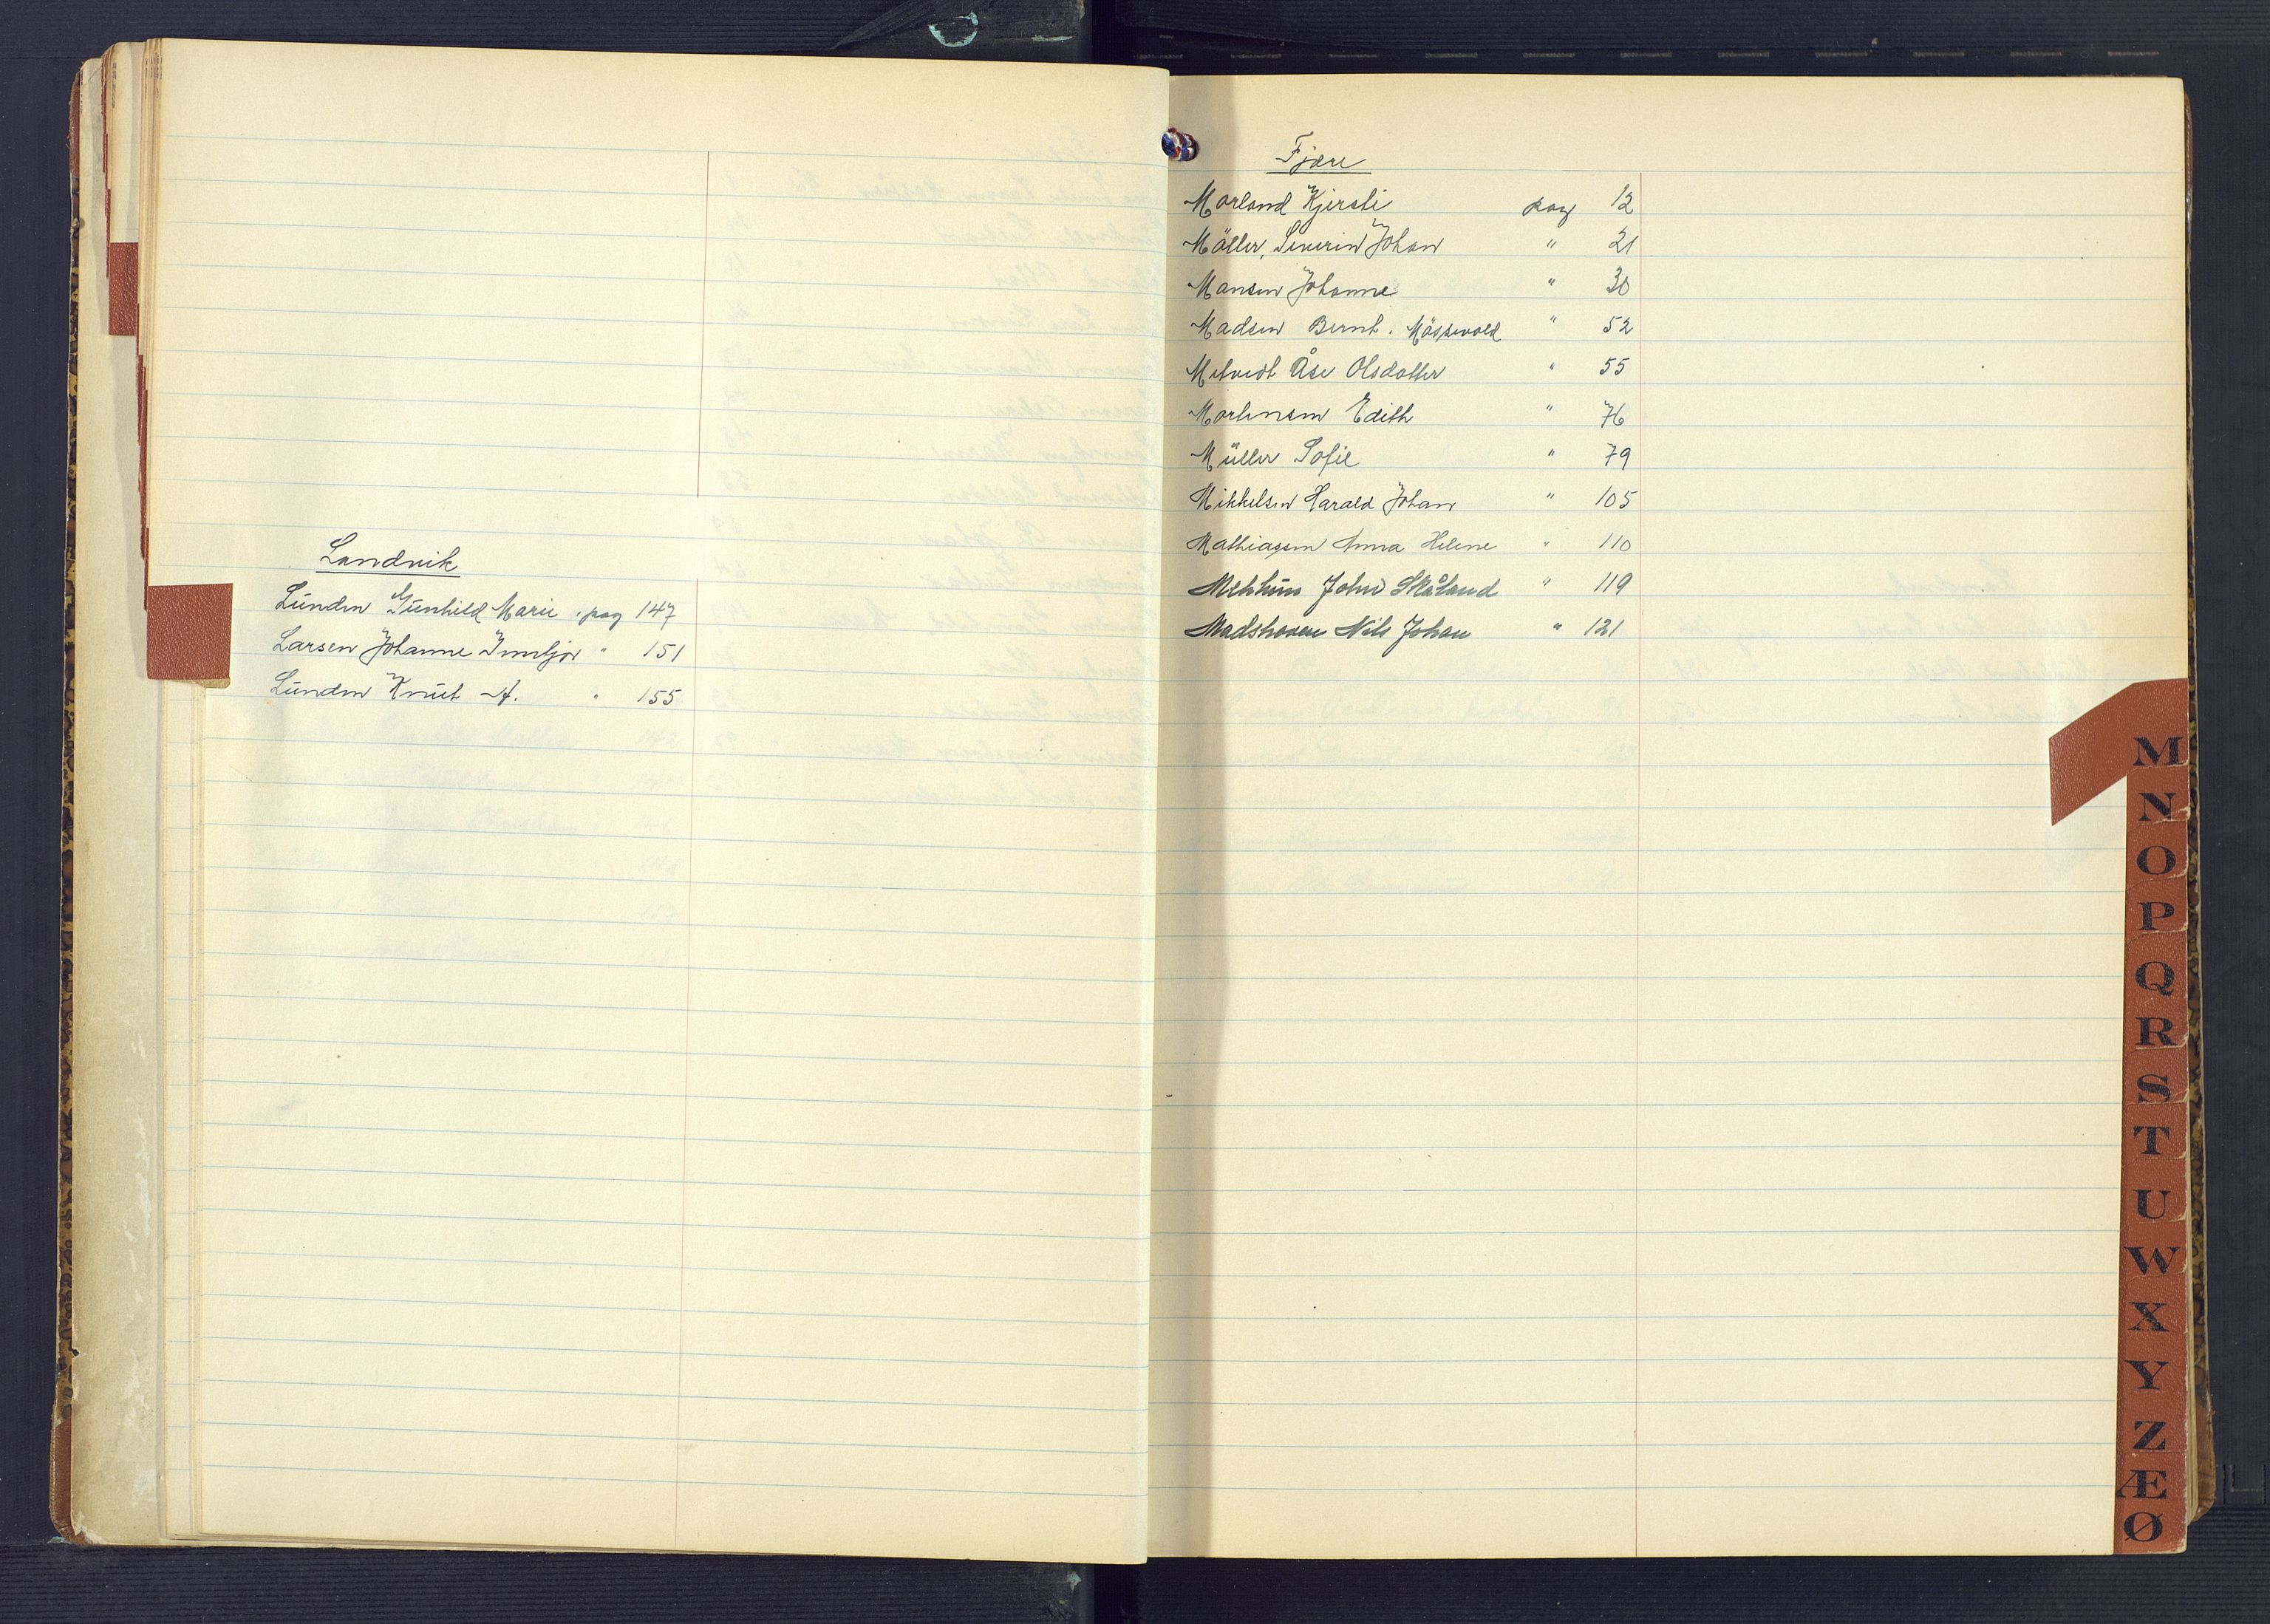 Landvik
Lunden Gunhild Marie . pag 147
Larsen Johanne " 151
Lunden Knut A. " 155
Fjære
Morland Kjersti pag 12
Möller, Severin Johan " 21
Mansen Johanne " 30
Madsen Bernt. " 52
Metvedt Åse Olsdatter " 55
Mortensen Edith " 76
Müller Sofie " 79
Mikkelsen Harald Johan " 105
Mathiassen Anna Helene " 110
John Skåland " 119
Madshaven Nils Johan " 121
M
N
O
P
Q
R
S
T
U
W
X
Y
Z
Æ
Ø